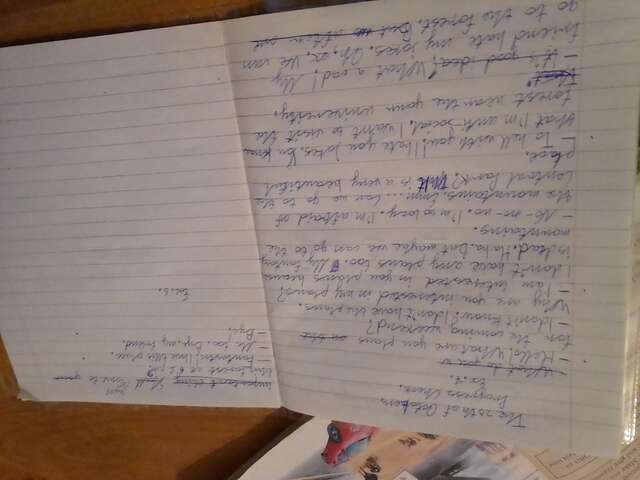 The 20th of October.
Progress Check.
Ex. 1.
- What do you
- Hello! What are you plans on the
for, the coming weekend?
- I don't know. I don't have the plans.
Why are you interested in my plans?
- I am interested in you plans because
I don't have any plans too. My fantasy
is dead. Ha ha. But maybe we can go to the
mountains.
- No-no-no. I'm so lazy. I'm afraid of
the mountains. Emm... Can we go to the
Central Park? It is a very beautiful
place.
- To hell with you! I hate you Jokes. You know
that I'm anti-social. I want to visit the
forest near the your university.
That
- It's good idea! What a sad! My
friend hate my jokes. Oh, ok. We can
go to the forest. But after
important thing Shall come to your
this forest at 6 p.m?
- Fantastic. I like this place.
- Me too. Bye, my friend.
- Bye!
Ex. 6.